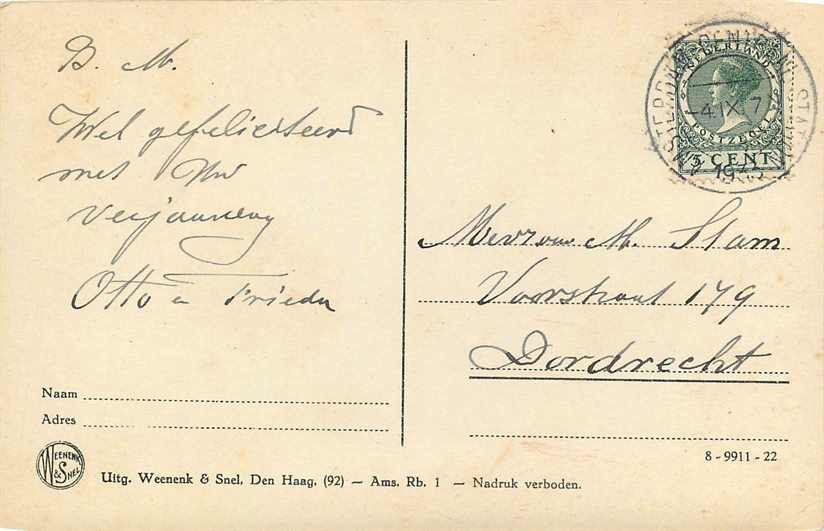 B. M.
Wel gefeliciteerd
met Uw
verjaardag
Otto en Frieda
NEDERLAND
POSTZEGEL
5 CENT
AMSTERDAM CENTRAAL STATION
-4.IX.7
1933
Mevrouw M. Slam
Voorstraat 179
Dordrecht
Naam
Adres
WEENENK
& SNEL
Uitg. Weenenk & Snel, Den Haag, (92) — Ams. Rb. 1 — Nadruk verboden.
8 - 9911 - 22